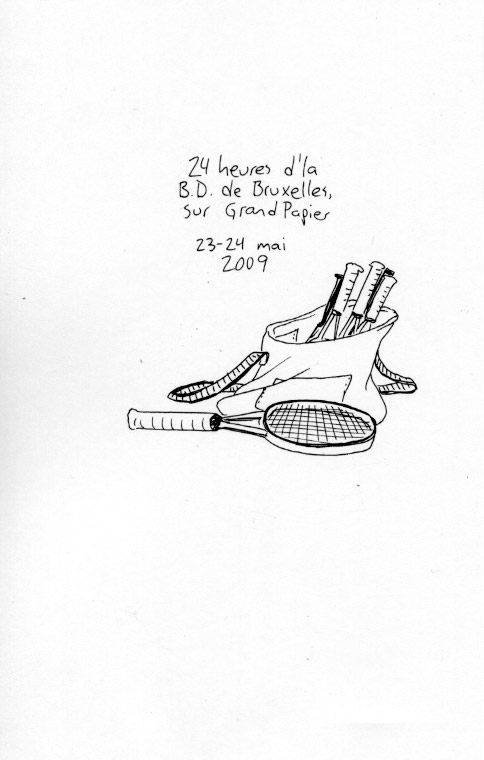 24 heures d'la
B.D. de Bruxelles,
sur Grand Papier
23-24 mai
2009